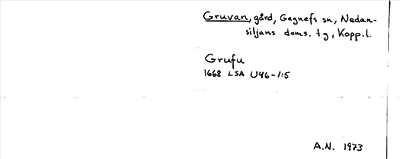 Gruvan, gård, Gagnefs sn, Nedan-
siljans doms. tg, Kopp.l.
Grufu
1668 LSA U46-1:5
A.N. 1973